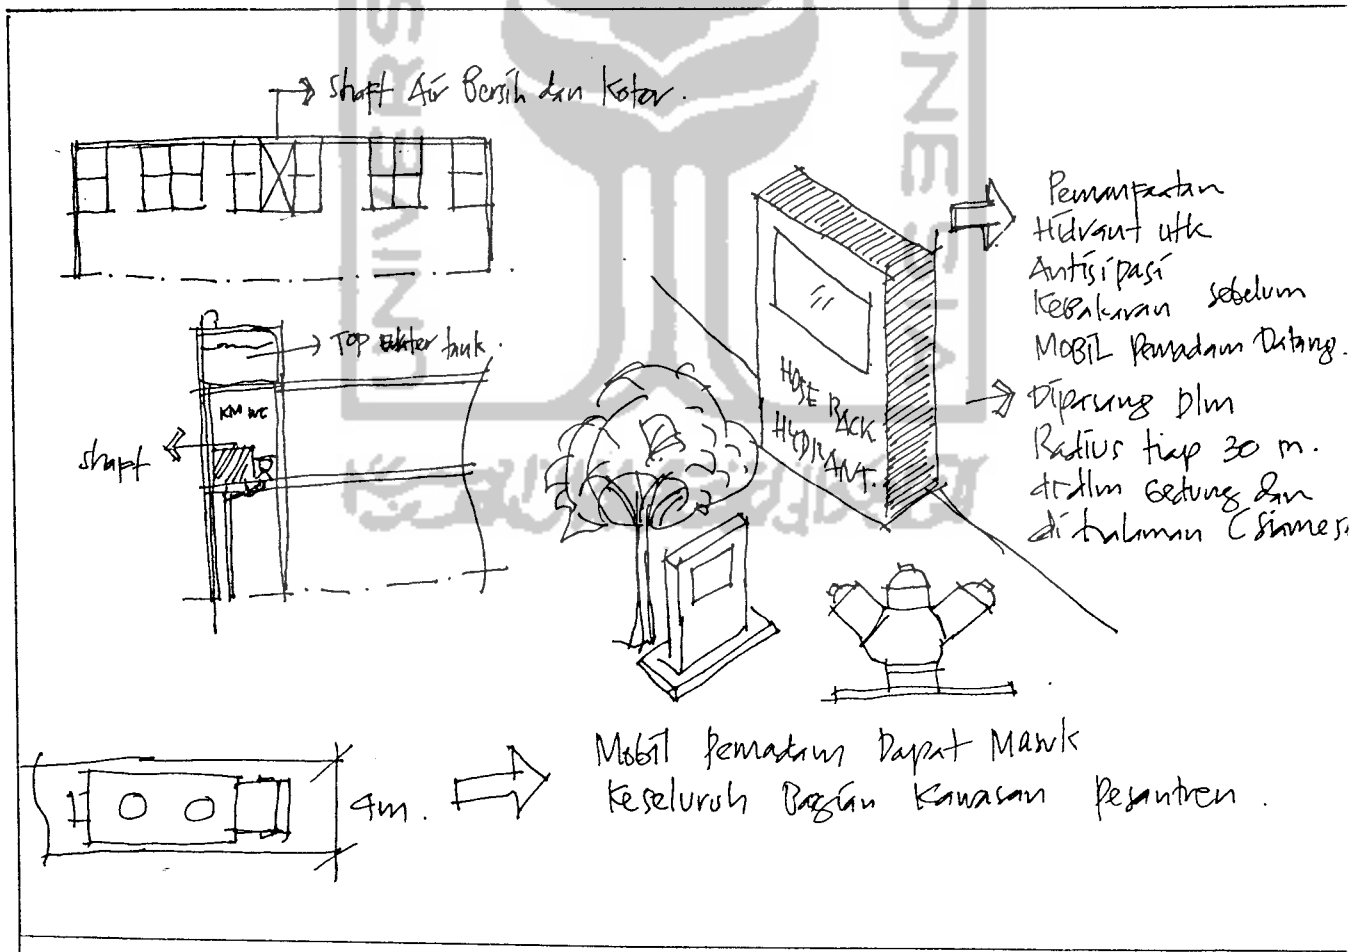 Shaft Air Bersih dan Kotor.
TOP Water tank.
KM WC
shaft
HOSE RACK
HYDRANT.
Pemanfaatan
Hidrant utk
Antisipasi
Kebakaran sebelum
MOBIL Pemadam Datang.
Dipasang Dlm
Radius tiap 30 m.
didlm Gedung dan
dihalaman (Siames
4m.
Mobil Pemadam Dapat Masuk
Keseluruh Bagian Kawasan Pesantren.
UNIVERS
ONESIA